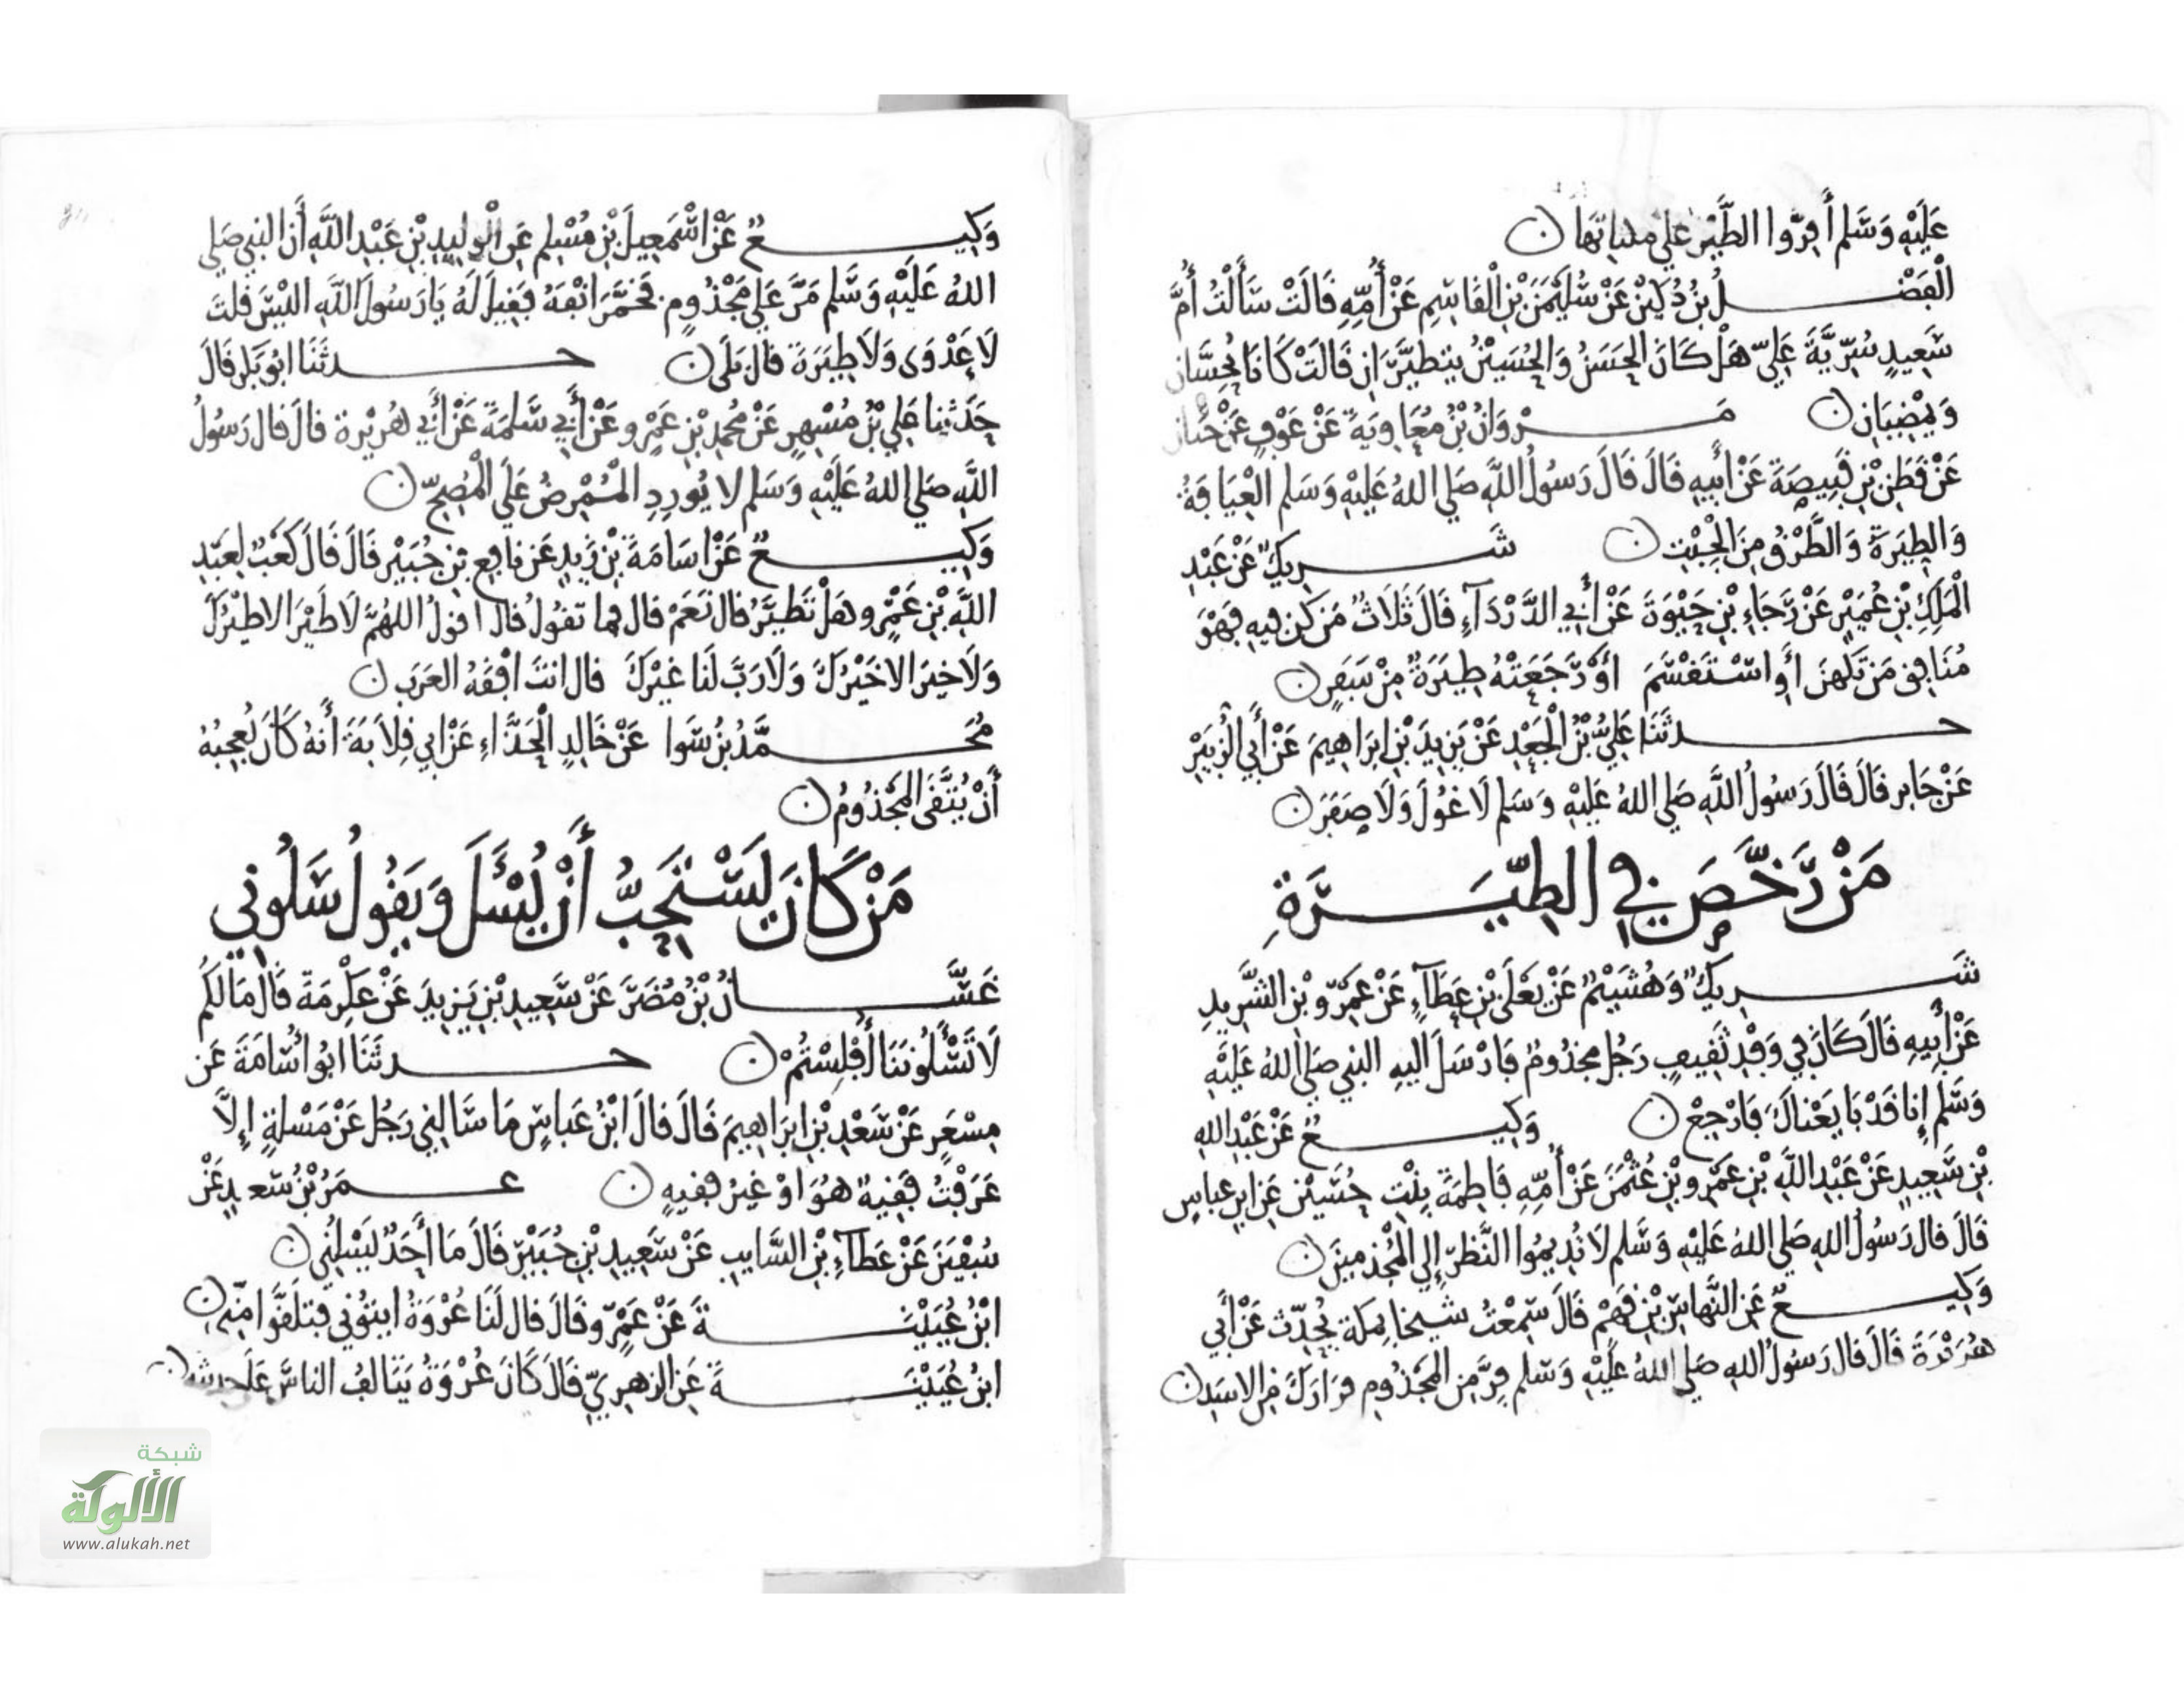 عَلَيْهِ وَسَلم أَفِرّوا الطَّيْر علي مكناتها
الْفَضْلُ بْنُ دُكَيْن عَنْ سُلَيْمَن بْنِ الْقَاسِمِ عَنْ أُمِّهِ قَالَتْ سَأَلْتُ أُمَّ
سَعِيدٍ سُرّيَّةَ عَلِيّ هَلْ كَانَ الحَسَنُ وَالحُسَيْنُ يتطيَّرَانِ قَالَتْ كَانَا يُحِسَّانِ
وَيمْضِيَانِ مَرْوَانُ بْنُ مُعَاوِيَةَ عَنْ عَوْفٍ عَنْ حَيان
عَنْ قَطَنِ بْنِ قَبِيصَةَ عَنْ أَبِيهِ قَالَ قَالَ رَسُولُ اللَّهِ صَلي اللهُ عَلَيْهِ وَسَلم الْعِيَافَةُ
وَالطِيَرَةُ وَالطَّرْقُ مِنَ الْجِبْتِ شَرِيكٌ عَنْ عَبْدِ
الْمَلِكِ بْنِ عُمَيْرٍ عَنْ رَّجَاءِ بْنِ حَيْوَةَ عَنْ أَبِي الدَّرْدَآءِ قَالَ ثَلَاثٌ مَن كن فِيهِ فَهْوَ
مُنَافِق مَن تَكَهنَ أَوِ اسْتَقْسَمَ أوْ رَّجَعَتْهُ طِيَرَةٌ مِنْ سَفَرٍ
حدثَنَا عَلِيُّ بْنُ الْجَعْدِ عَنْ يَزِيدَ بْنِ ابرَاهِيمَ عَنْ أَبِي الزُّبَيْرِ
عَنْ جَابِر قَالَ قَالَ رَسُولُ اللَّهِ صَلي اللهُ عَلَيْهِ وَسَلم لَا غُولَ وَلَا صَفَرَ
مَنْ رَّخَّصَ فِي الطِّيَرَةِ
شَرِيكٌ وَهُشَيْمٌ عَنْ يَعْلَى بْنِ عَطَآءٍ عَنْ عَمْرِو بْنِ الشَّرِيدِ
عَنْ أَبِيهِ قَالَ كَانَ فِي وَفْدِ ثَقِيفٍ رَجُل مجذُومٌ فَارْسَلَ اليهِ النبي صَلي اللهُ عَلَيْهِ
وَسَلم إِنا قَدْ بَايَعْنَاكَ فَارْجِعْ وَكِيعٌ عَنْ عَبْدِ اللهِ
بْنِ سَعِيدٍ عَنْ عَبْدِ اللَّهِ بْنِ عَمْرِو بْنِ عُثْمَن عَنْ أُمِّهِ فَاطِمَةَ بِنْتِ حُسَيْن عَنِ ابنِ عباسٍ
قَالَ قال رَسُولُ اللهِ صَلي اللهُ عَلَيْهِ وَسَلم لَا تُدِيمُوا النَّظَرَ إِلي الْمُجْذمينَ
وَكِيعٌ عَنِ النَّهَّاسِ بْنِ قَهْم قَالَ سَمِعْتُ شَيخا بِمَكةَ يُحَدِّث عَنْ أَبِي
هُرَيْرَةَ قَالَ قال رَسُولُ اللهِ صَلي اللهُ عَلَيْهِ وَسَلم فِرَّ مِن المَجْذُومِ فرَارَكَ مِن الاسَدِ
وَكِيعٌ عَنْ اسْمَعِيلَ بْنِ مُسْلِم عَنِ الْوَلِيدِ بْنِ عَبْدِ اللَّهِ أَن النبي صَلي
اللهُ عَلَيْهِ وَسَلم مَرَّ عَلي مَجْذُومٍ فَخَمَّرَ انْفَهُ فَقِيلَ لَهُ يَا رَسُولَ اللَّهِ الَيْسَ قلتَ
لَا عَدْوَى وَلَا طِيَرَةَ قال بَلَى حدثَنَا ابُو بَكر قَالَ
حَدَّثنا عَلِي بْنُ مُسْهِرٍ عَنْ مُحمدِ بْنِ عَمْرٍو عَنْ أَبِي سَلمَةَ عَنْ أَبِي هُرَيْرة قالَ قال رَسُولُ
اللَّهِ صَلي اللهُ عَلَيْهِ وَسَلم لا يُورِدِ الْمُمْرِضُ عَلَي الْمُصِحِّ
وَكِيعٌ عَنْ اسَامَةَ بْنِ زَيدٍ عَن نافِعِ بنِ جُبَيْر قَالَ قَالَ كَعْبٌ لِعَبْدِ
اللَّهِ بْنِ عَمْرٍو هَلْ تَطيَّرُ قال نَعَمْ قال فما تقولُ قال اقولُ اللهُمَّ لَا طَيْرَ الا طَيْرُكَ
وَلَا خَيرَ الا خَيْرُكَ وَلَا رَبَّ لَنا غَيْرُكَ قال انتَ افْقَهُ العَرَبِ
مُحَمَّدُ بْنُ سَوا عَنْ خَالِدٍ الْحَذَّاءِ عَنْ ابي قِلَابَةَ أَنهُ كَانَ يُعجِبُهُ
أَنْ يُتَّقَى الْمَجْذُومُ
مَنْ كَانَ يَسْتَحِبُّ أَنْ يُسْأَلَ وَيَقُولُ سَلُونِي
غَسَّانُ بْنُ مُضَرَ عَنْ سَعِيدِ بْنِ يَزِيدَ عَنْ عِكْرِمَةَ قَالَ مَا لَكُم
لَا تَسْأَلُونَنَا أَفْلَسْتُمْ حدثَنَا ابُو اُسَامَةَ عَن
مِسْعَرٍ عَنْ سَعْدِ بْنِ ابْرَاهِيمَ قَالَ قالَ ابْنُ عَبَّاسٍ مَا سَالنِي رَجُل عَنْ مَسْلةٍ إِلَّا
عَرَفْتُ فَقِيهٌ هُوَ اوْ غَيْرُ فَقيهٍ عمَرُ بْنُ سَعدٍ عَنْ
سُفْيَنَ عَنْ عَطآءِ بْنِ السَّايبِ عَنْ سَعِيدِ بْنِ جُبَيْرٍ قَالَ مَا أَحَدٌ يَسْلُنِي
ابْنُ عُيَيْنَةَ عَنْ عَمْرٍو قَالَ قال لَنَا عُرْوَةُ ايتُونِي فتلَقَّوْا مِنّي
ابنُ عُيَيْنَةَ عَنِ الزهرِيِّ قَالَ كَانَ عُرْوَةُ يَتَالفُ الناسَ عَلَى حديثه
شبكة
الألوكة
www.alukah.net